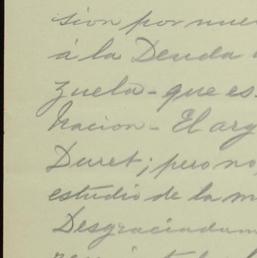 sion por nue
á la Deuda
zuela - que es
Nacion - El arg
Duret; pero no
estudio de la m
Desgraciadam